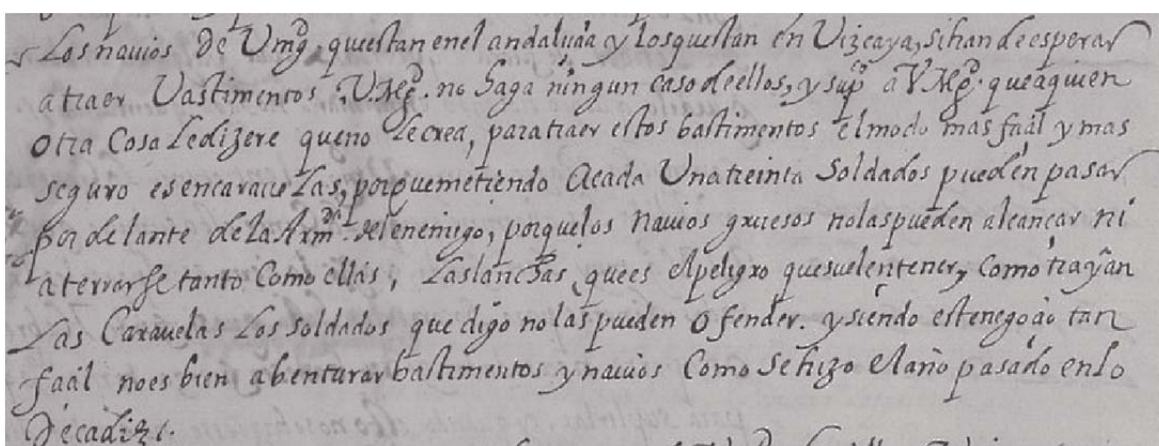 Los navios de Vmgd. questan en el andaluzia y los questan en Vizcaya, si han de esperar
a traer Vastimentos, V.Mgd. no haga ningun caso de ellos, y supco a V.Mgd. que a quien
otra Cosa le dizere que no le crea, para traer estos bastimentos el modo mas facil y mas
seguro es en caravelas, porque metiendo a cada Una treinta Soldados pueden pasar
por delante de la Armda. del enemigo, porque los navios gruesos no las pueden alcançar ni
aterrarse tanto Como ellas, Las lanchas, que es el peligro que suelen tener, como trayan
Las Caravelas Los soldados que digo no las pueden ofender. y siendo este negocio tan
facil no es bien abenturar bastimentos y navios Como se hizo el año pasado en lo
de cadiz.